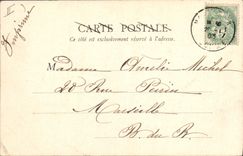 Imprimé
CARTE POSTALE
Ce côté est exclusivement réservé à l'adresse.
Madame Amélie Michel
28 Rue
Marseille
B. du R.